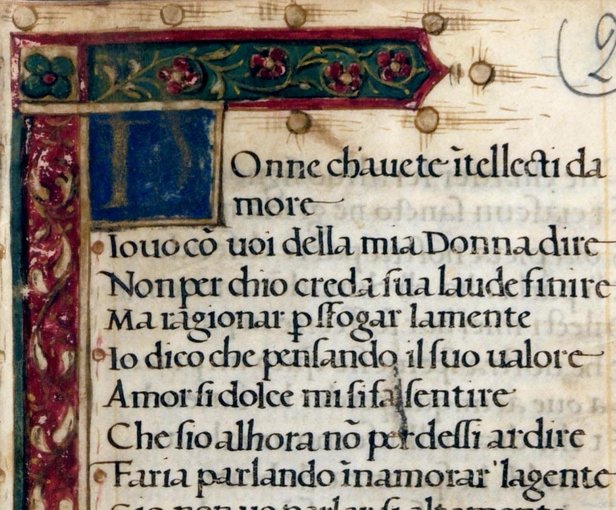 2
Donne ch'auete ītellecti da
more
Io uo cō uoi della mia Donna dire
Non per chio creda sua laude finire
Ma ragionar p̱ sfogar lamente
Io dico che pensando il suo ualore
Amor si dolce mi si fa sentire
Che sio alhora nō perdessi ardire
Faria parlando īnamorar lagente
E io non uo parlar si altamente